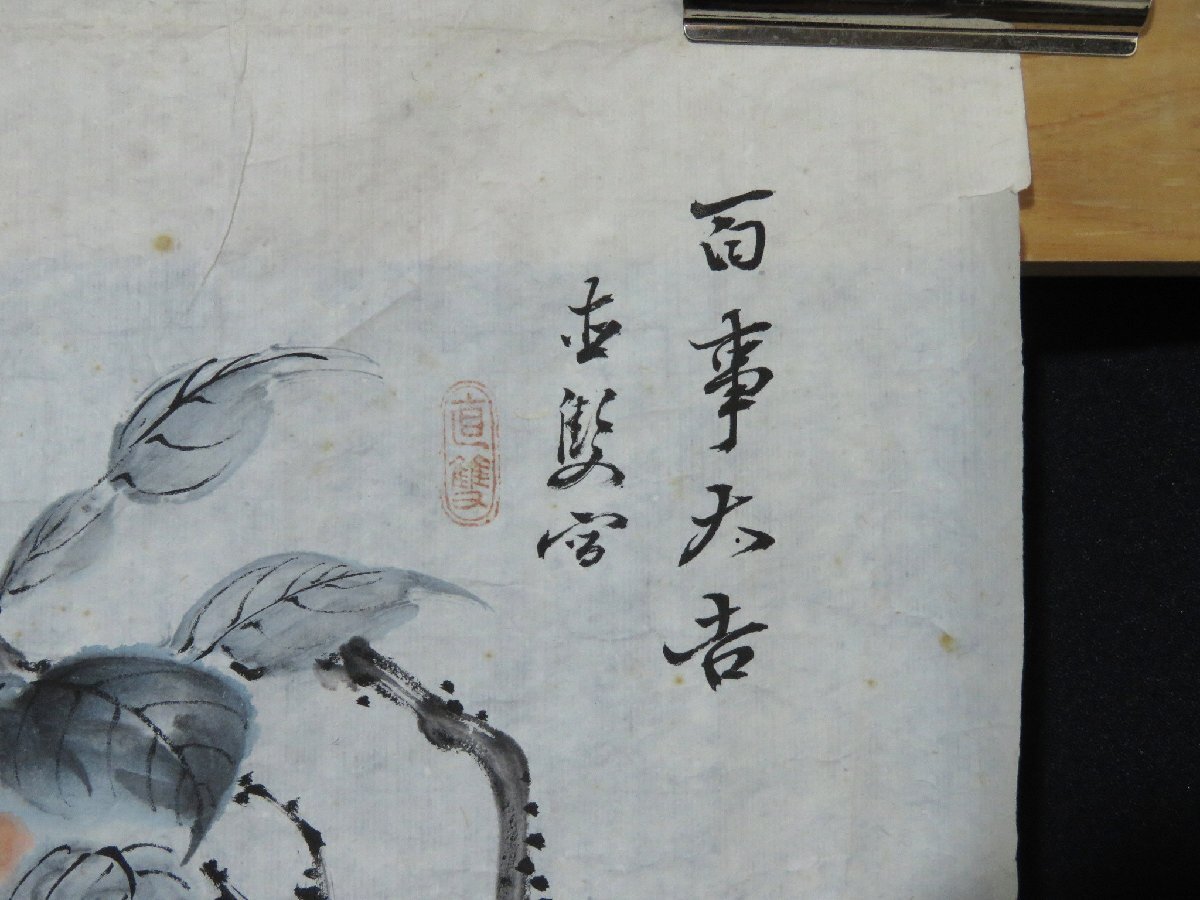 百事大吉
直雙写
直雙